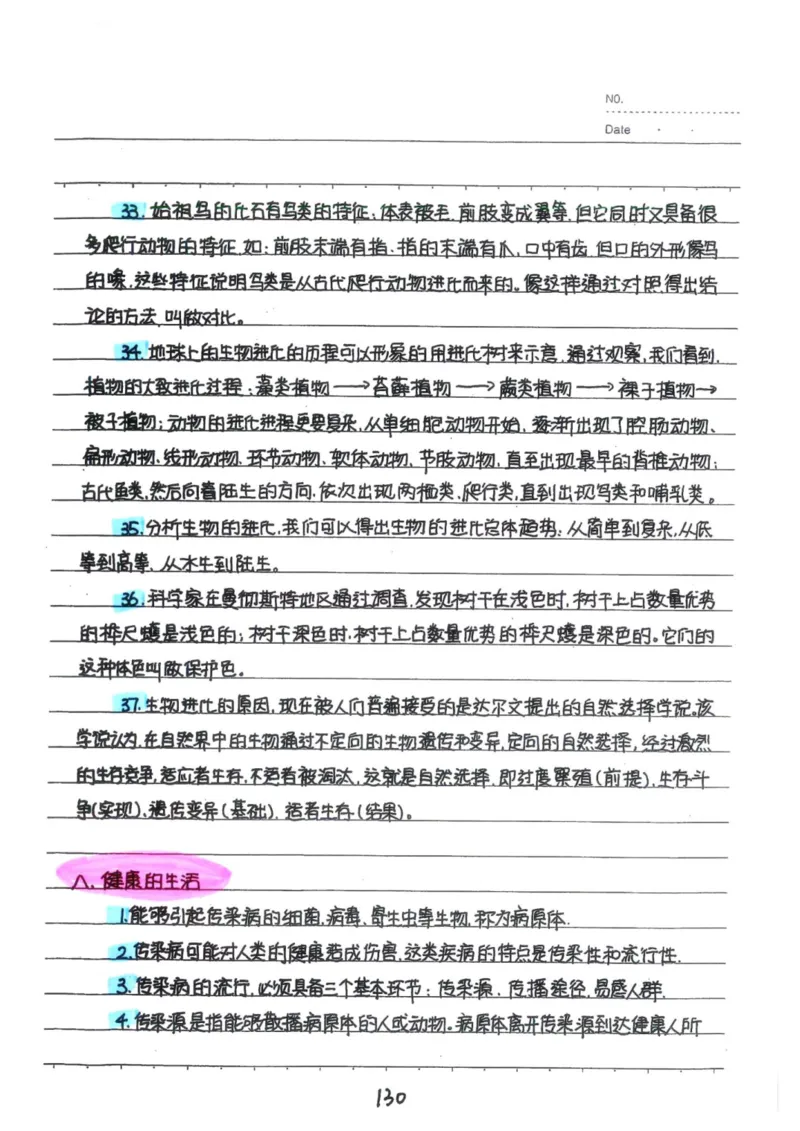 NO.
Date
33. 始祖鸟的化石有鸟类的特征：体表被毛，前肢变成翼等，但它同时又具备很
多爬行动物的特征，如：前肢末端有指、指的末端有爪，口中有齿，但口的外形像鸟
的喙，这些特征说明鸟类是从古代爬行动物进化而来的。像这样通过对照得出结
论的方法，叫做对比。
34. 地球上的生物进化的历程可以形象的用进化树来示意，通过观察，我们看到，
植物的大致进化过程：藻类植物→苔藓植物→蕨类植物→裸子植物→
被子植物；动物的进化进程更要复杂，从单细胞动物开始，逐渐出现了腔肠动物、
扁形动物、线形动物、环节动物、软体动物、节肢动物，直至出现最早的脊椎动物：
古代鱼类，然后向着陆生的方向，依次出现两栖类、爬行类，直到出现鸟类和哺乳类。
35. 分析生物的进化，我们可以得出生物的进化总体趋势：从简单到复杂，从低
等到高等，从水生到陆生。
36. 科学家在曼彻斯特地区通过调查，发现树干在浅色时，树干上占数量优势
的桦尺蠖是浅色的；树干深色时，树干上占数量优势的桦尺蠖是深色的。它们的
这种体色叫做保护色。
37. 生物进化的原因，现在被人们普遍接受的是达尔文提出的自然选择学说。该
学说认为，在自然界中的生物通过不定向的生物遗传和变异，定向的自然选择，经过激烈
的生存竞争，适应者生存，不适者被淘汰，这就是自然选择，即过度繁殖（前提），生存斗
争（实现），遗传变异（基础），适者生存（结果）。
八、健康的生活
1. 能够引起传染病的细菌、病毒、寄生虫等生物，称为病原体.
2. 传染病可能对人类的健康造成伤害，这类疾病的特点是传染性和流行性.
3. 传染病的流行，必须具备三个基本环节：传染源、传播途径、易感人群.
4. 传染源是指能够散播病原体的人或动物。病原体离开传染源到达健康人所
130